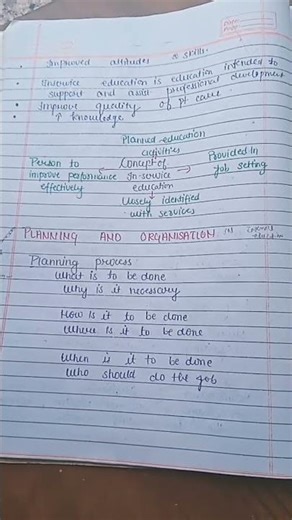 • Improved attitudes & skills.
• Inservice education is education intended to
support and assist professional development
• Improve quality of pt care
• ↑ knowledge
Planned education
activities
Person to ← Concept of → Provided in
improve performance In-service job setting
effectively education
Closely identified
with services
PLANNING AND ORGANISATION IN
Planning process
What is to be done
Why is it necessary
How is it to be done
Where is it to be done
When is it to be done
Who should do the job